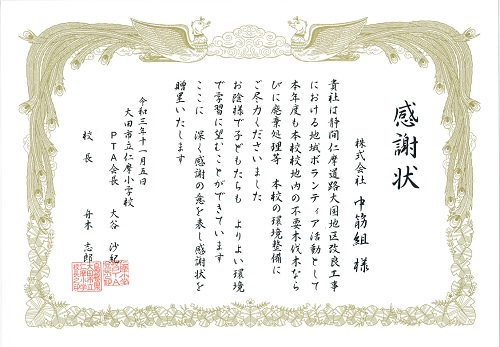 感謝状
株式会社 中筋組 様
貴社は静間仁摩道路大国地区改良工事
における地域ボランティア活動として
本年度も本校校地内の不要木伐木なら
びに廃棄処理等 本校の環境整備に
ご尽力くださいました
お陰様で子どもたちも よりよい環境
で学習に望むことができています
ここに 深く感謝の意を表し感謝状を
贈呈いたします
令和三年十一月五日
大田市立仁摩小学校
PTA会長 大谷 沙紀
校長 舟木 志郎